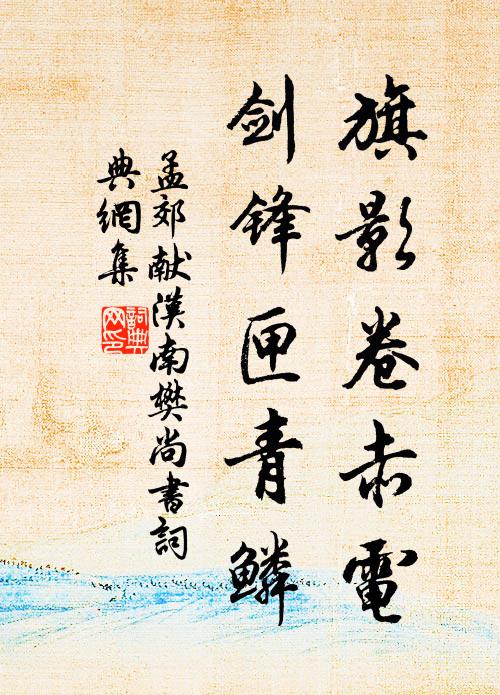 旗影卷赤電
劍鋒匣青鱗
孟郊献漢南樊尚書詞
典網集
詞典網印